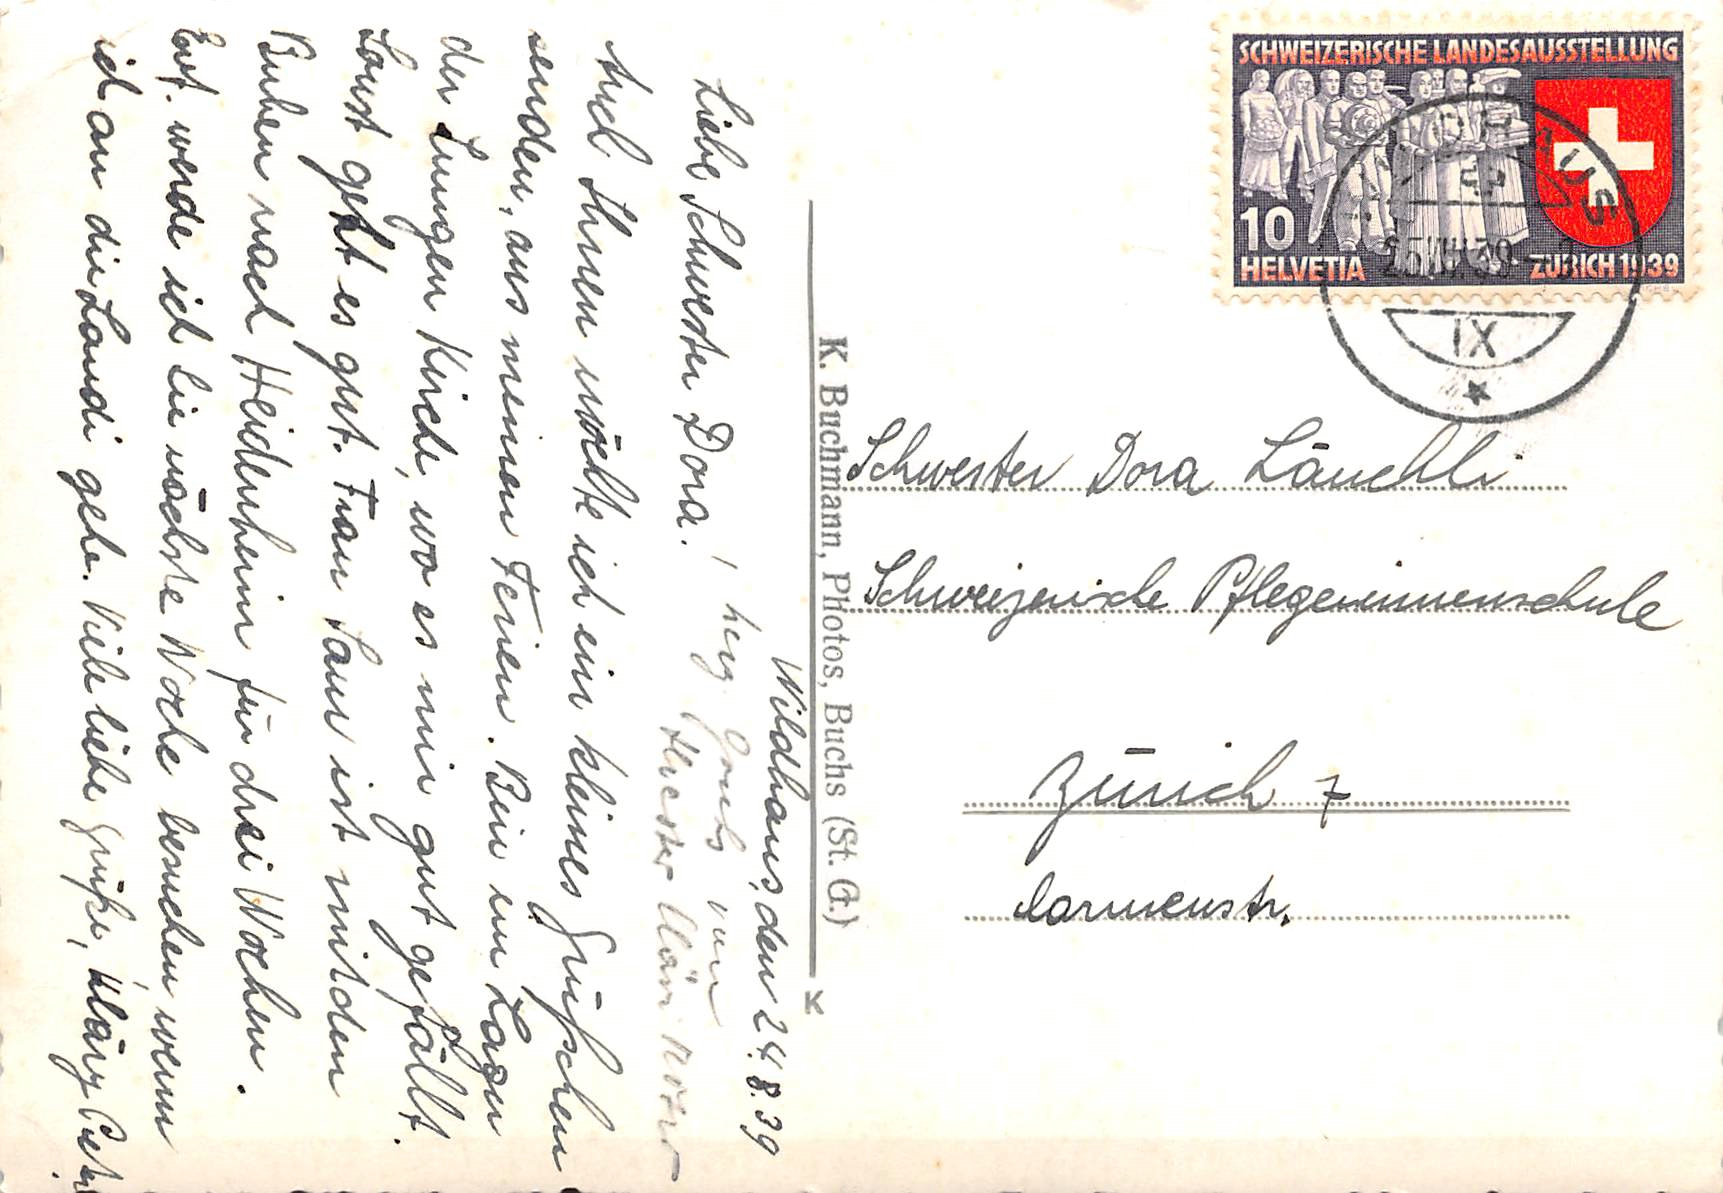 Wildhaus, den 24.8.39
Liebe Schwester Dora!
Auch Ihnen möchte ich ein kleines Grüßchen
senden, aus meinen Ferien. Bin im Lager
der Jungen Kirche, wo es mir gut gefällt.
Sonst geht es gut. Frau Saur ist mit den
Buben nach Heidenheim für drei Wochen.
Evt. werde ich Sie nächste Woche besuchen wenn
ich an die Landi gehe. Viele liebe Grüße, Kläry
herz. Gruss von
K. Buchmann, Photos, Buchs (St. G.)
K
SCHWEIZERISCHE LANDESAUSSTELLUNG
10
HELVETIA
ZÜRICH 1939
IX
Schwester Dora Läuchli
Schweizerische Pflegerinnenschule
Zürich 7
Carmenstr.